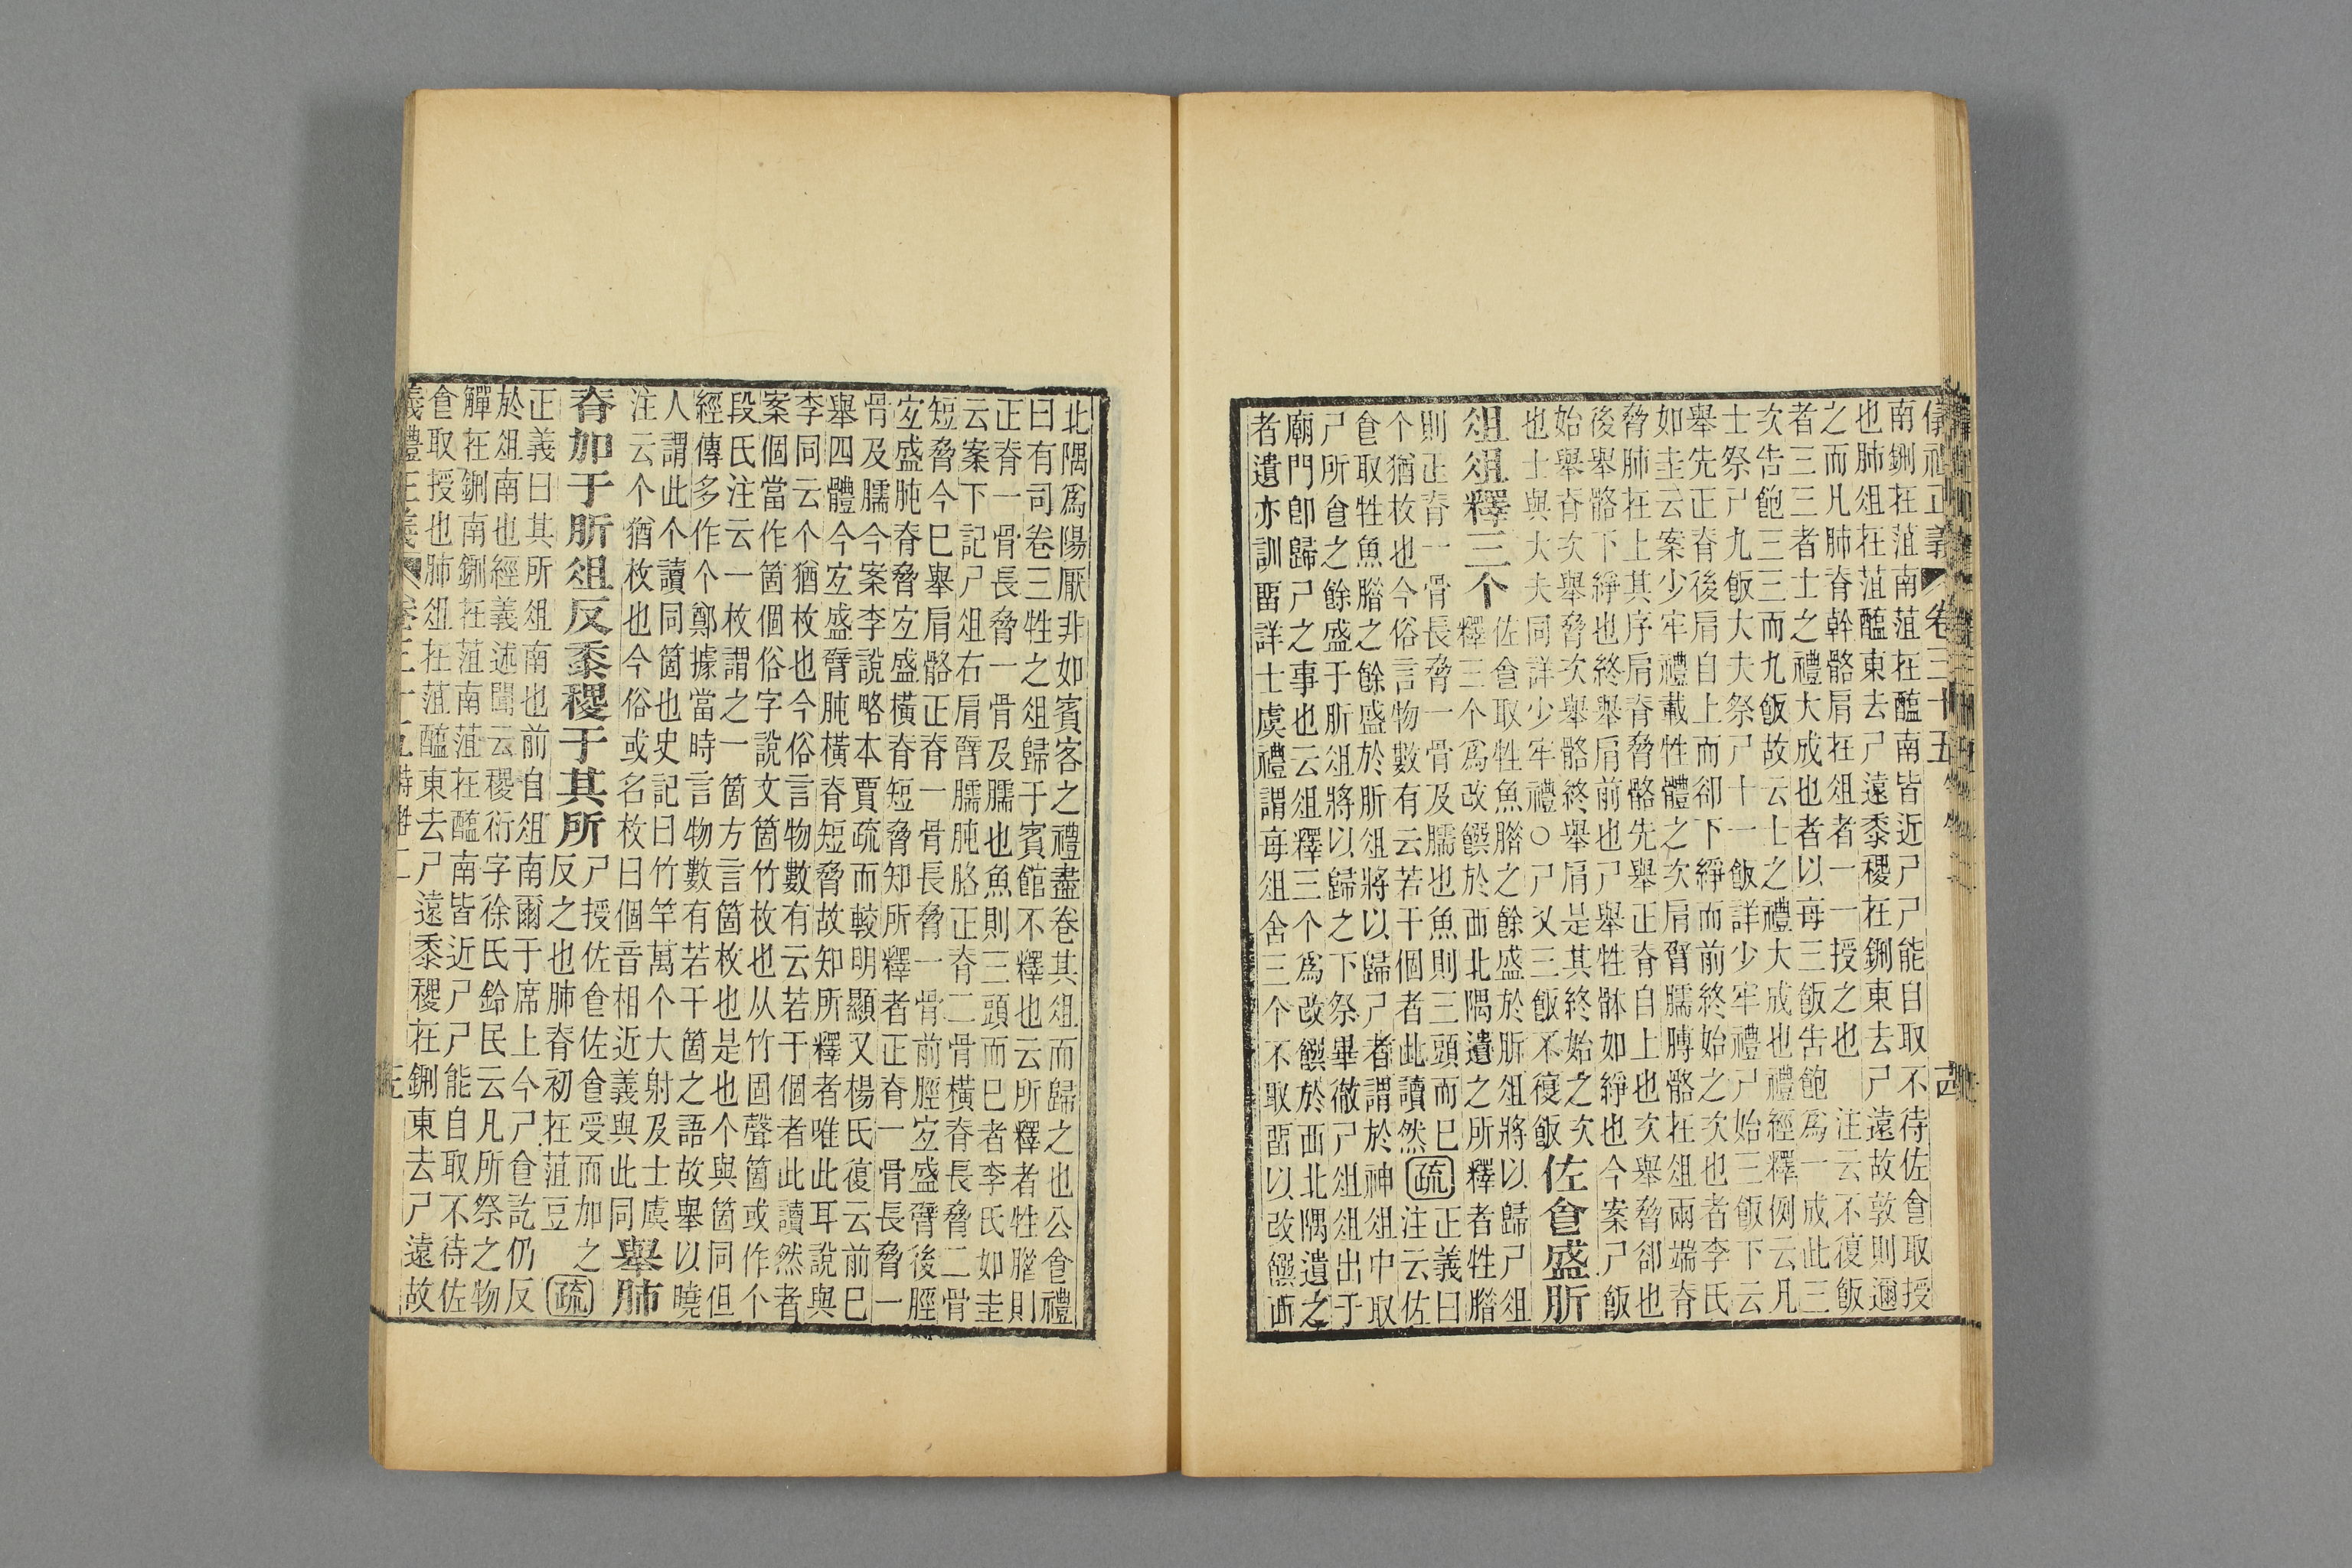 儀禮正義 卷三十五
南鉶在菹南菹在醢南皆近尸尸能自取不待佐食取授
也肺俎在菹醢東去尸遠黍稷在鉶東去尸遠故敦則邇
之而凡肺脊幹骼肩在俎者一一授之也 注云不復飯
者三三者士之禮大成也者以每三飯告飽爲一成此三
次告飽三三而九飯故云士之禮大成也禮經釋例云凡
士祭尸九飯大夫祭尸十一飯詳少牢禮尸始三飯下云
舉先正脊後肩自上而卻下綷而前終始之次也者李氏
如圭云案少牢禮載牲體之次肩臂臑膊骼在俎兩端脊
脅肺在上其序肩脊脅骼先舉正脊自上也次舉脅卻也
後舉骼下綷也終舉肩前也尸舉牲體如綷也今案尸飯
始舉脊次舉脅次舉骼終舉肩是其終始之次
也士與大夫同詳少牢禮○尸又三飯不復飯
佐食盛肵
俎俎釋三个
佐食取牲魚腊之餘盛於肵俎將以歸尸俎
釋三个爲改饌於西北隅遺之所釋者牲腊
則正脊一骨長脅一骨及臑也魚則三頭而已
个猶枚也今俗言物數有云若干個者此讀然
疏
正義曰
注云佐
食取牲魚腊之餘盛於肵俎將以歸尸者謂於神俎中取
尸所食之餘盛于肵俎將以歸之下祭畢徹尸俎俎出于
廟門卽歸尸之事也云俎釋三个爲改饌於西北隅遺之
者遺亦訓畱詳士虞禮謂每俎舍三个不取畱以改饌西
北隅爲陽厭非如賓客之禮盡卷其俎而歸之也公食禮
曰有司卷三牲之俎歸于賓館不釋也云所釋者牲腊則
正脊一骨長脅一骨及臑也魚則三頭而已者李氏如圭
云案下記尸俎右肩臂臑肫胳正脊二骨橫脊長脅二骨
短脅今已舉肩骼正脊一骨長脅一骨前脛宐盛臂後脛
宐盛肫脊脅宐盛橫脊短脅知所釋者正脊一骨長脅一
骨及臑今案李說略本賈疏而較明顯又楊氏復云前已
舉四體今宐盛臂肫橫脊短脅故知所釋者唯此耳說與
李同云个猶枚也今俗言物數有云若干個者此讀然者
案個當作箇個俗字說文箇竹枚也从竹固聲箇或作个
段氏注云一枚謂之一箇方言箇枚也是也个與箇同但
經傳多作个鄭據當時言物數有若干箇之語故舉以曉
人謂此个讀同箇也史記曰竹竿萬个大射及士虞
注云个猶枚也今俗或名枚曰個音相近義與此同
舉肺
脊加于肵俎反黍稷于其所
尸授佐食佐食受而加之
反之也肺脊初在菹豆
疏
正義曰其所俎南也前自俎南爾于席上今尸食訖仍反
於俎南也經義述聞云稷衍字徐氏鈴民云凡所祭之物
觶在鉶南鉶在菹南菹在醢南皆近尸尸能自取不待佐
食取授也肺俎在菹醢東去尸遠黍稷在鉶東去尸遠故